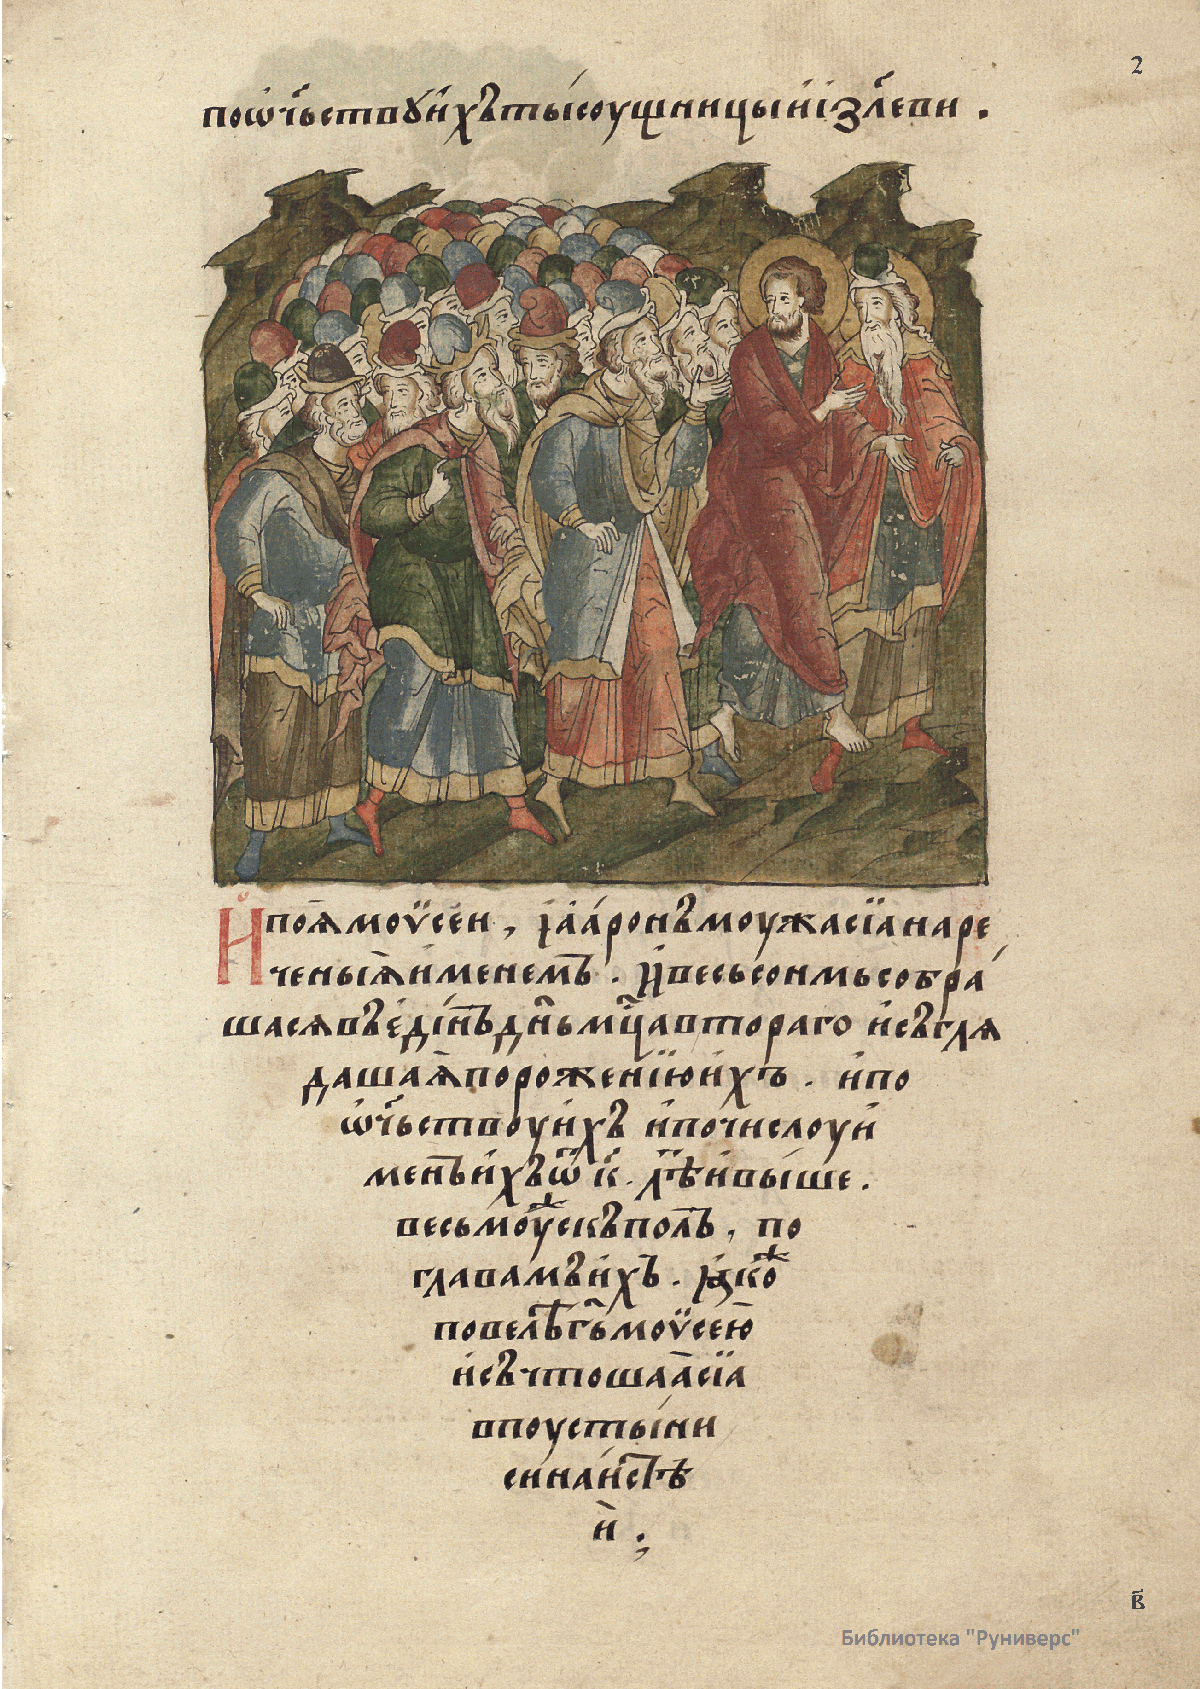 2
поѡч҃ьствꙋи́хътысоущницыиізлеви .
Ипоя́моѵ̈сеи , іаа́ронъмоужасїанаре
ченыѧ́именемъ . И҆весьсонмьсобра́
шасѧвъе҆дінъднь҃мцⷭ҇автораго и҆съглѧ
дашаѧ́порожені́юи́хъ . и҆по
ѡ҆ч҃ьствоуи́хъ и҆почислоуи
менъи́хъѿ к҃ . лѣ҃ивы́ше .
весьмоуⷤскъполъ , по
главамъи́хъ . Ꙗ҆коⷤ
повелѣгь҃моѵ̈сею
и҆съчтошаа҆сїа
впоусты́ни
синаи́стѣ
и҆ .
в҃
Библиотека "Руниверс"